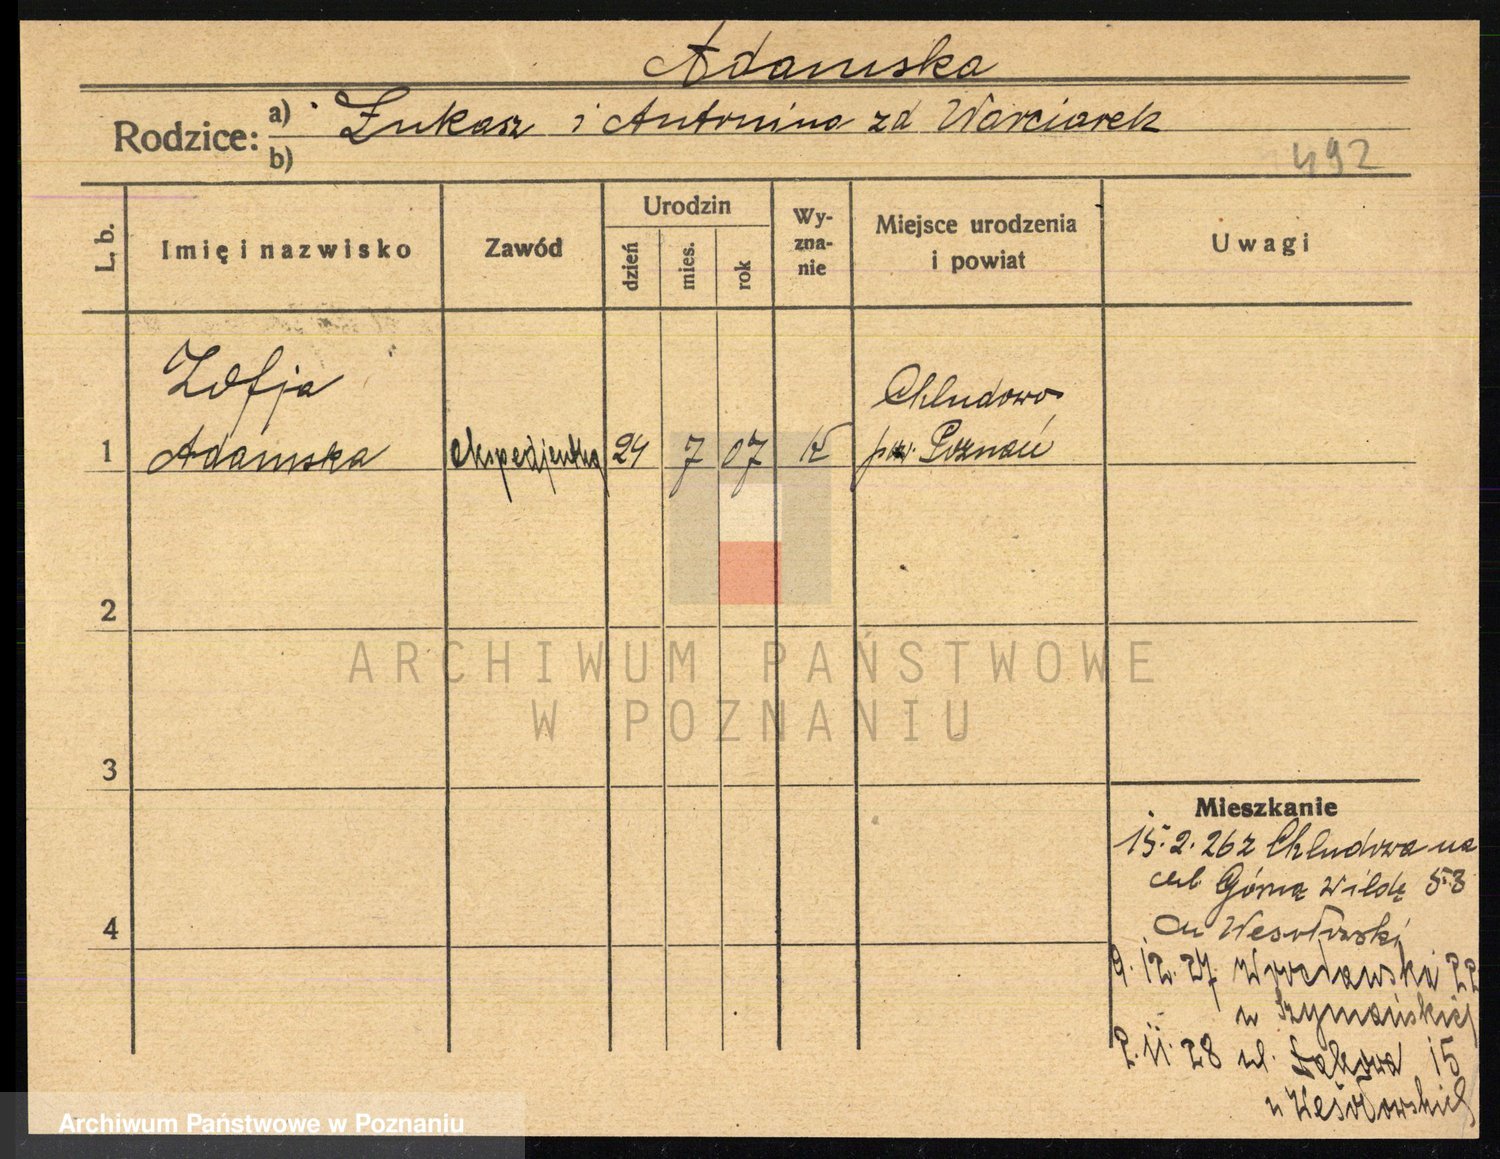 Adamska
Rodzice: a) Łukasz i Antonina zd Warciarek
b)
492
L. b.
Imię i nazwisko
Zawód
Urodzin
dzień
mies.
rok
Wy-
zna-
nie
Miejsce urodzenia
i powiat
Uwagi
Zofja
Chludowo
1 Adamska ekspedjentka 24 7 07 rk pow. Poznań
2
3
4
Mieszkanie
15.2.26 z Chludowa na
ul. Górną Wildę 58
u Wesołowski
9.12.27 Wrocławska 22
u Szymańskiej
2.11.28 ul. Łąkowa 15
u Wesołowskich
ARCHIWUM PAŃSTWOWE
W POZNANIU
Archiwum Państwowe w Poznaniu